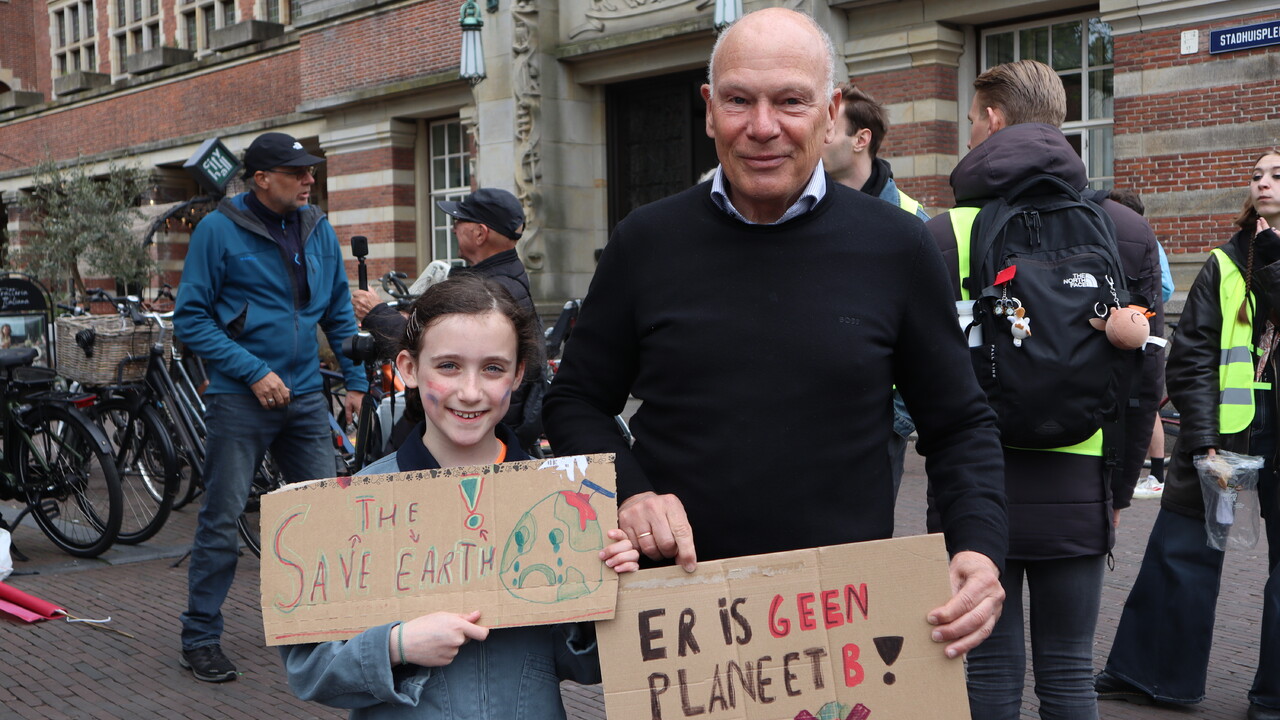 STADHUISPLE
THE
NORTH
FACE
BOSS
THE !
SAVE EARTH
ER iS GEEN
PLANEET B!